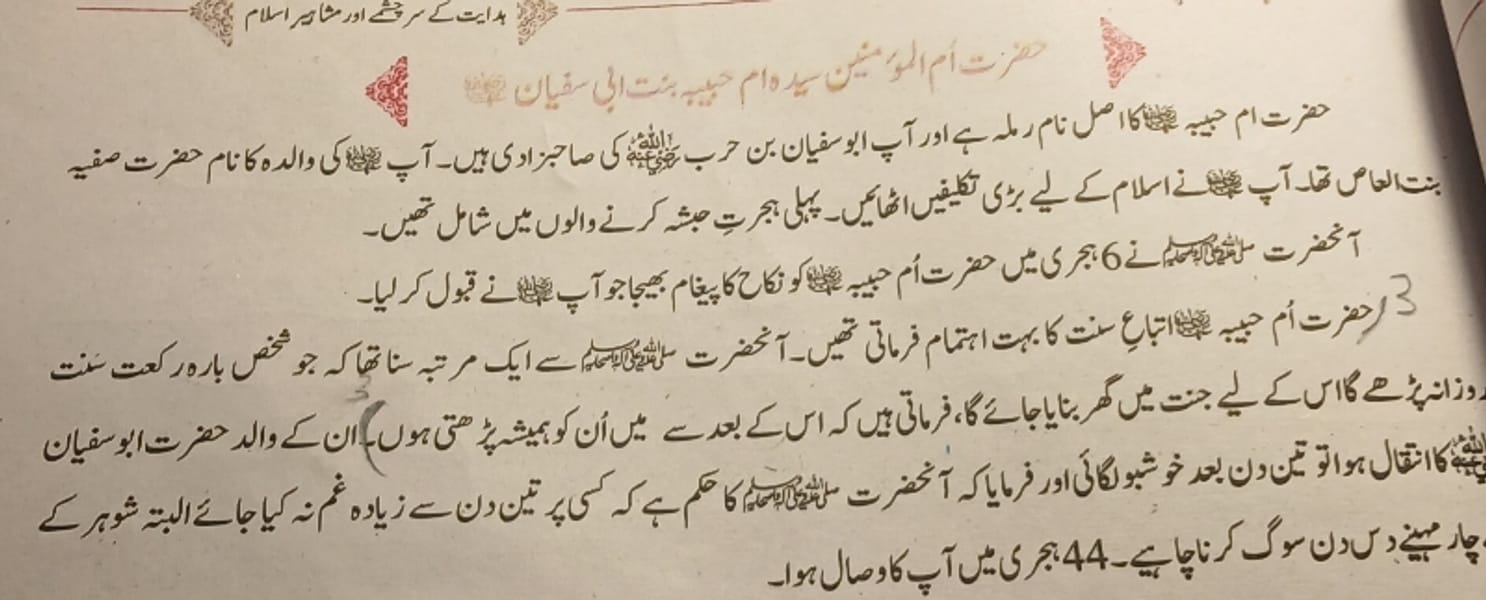 ہدایت کے سرچشمے اور مشاہیر اسلام
حضرت اُم المؤمنین سیدہ ام حبیبہ بنت ابی سفیان رضی اللہ عنہا
حضرت ام حبیبہ رضی اللہ عنہا کا اصل نام رملہ ہے اور آپ ابوسفیان بن حرب رضی اللہ عنہ کی صاحبزادی ہیں۔ آپ رضی اللہ عنہا کی والدہ کا نام حضرت صفیہ
بنت العاص تھا۔ آپ رضی اللہ عنہا نے اسلام کے لیے بڑی تکلیفیں اٹھائیں۔ پہلی ہجرتِ حبشہ کرنے والوں میں شامل تھیں۔
آنحضرت صلی اللہ علیہ وسلم نے 6 ہجری میں حضرت اُم حبیبہ رضی اللہ عنہا کو نکاح کا پیغام بھیجا جو آپ رضی اللہ عنہا نے قبول کر لیا۔
3 حضرت اُم حبیبہ رضی اللہ عنہا اتباعِ سنت کا بہت اہتمام فرماتی تھیں۔ آنحضرت صلی اللہ علیہ وسلم سے ایک مرتبہ سنا تھا کہ جو شخص بارہ رکعت سنت
روزانہ پڑھے گا اس کے لیے جنت میں گھر بنایا جائے گا، فرماتی ہیں کہ اس کے بعد سے میں اُن کو ہمیشہ پڑھتی ہوں۔ ان کے والد حضرت ابوسفیان
رضی اللہ عنہ کا انتقال ہوا تو تین دن بعد خوشبو لگائی اور فرمایا کہ آنحضرت صلی اللہ علیہ وسلم کا حکم ہے کہ کسی پر تین دن سے زیادہ غم نہ کیا جائے البتہ شوہر کے
چار مہینے دس دن سوگ کرنا چاہیے۔ 44 ہجری میں آپ کا وصال ہوا۔